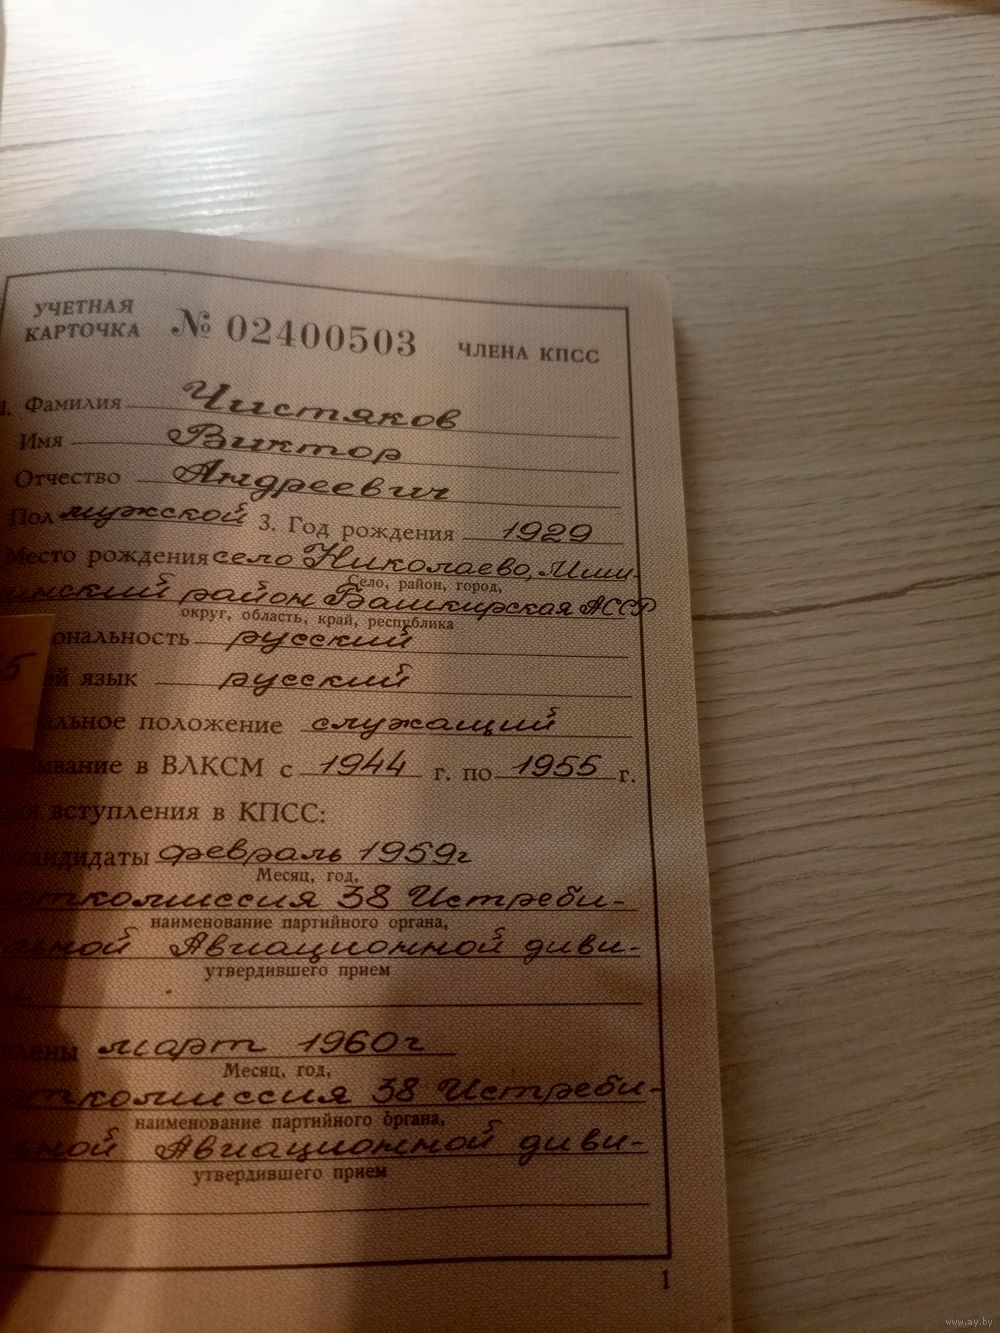 УЧЕТНАЯ
КАРТОЧКА № 02400503 ЧЛЕНА КПСС
1. Фамилия Чистяков
Имя Виктор
Отчество Андреевич
Пол мужской 3. Год рождения 1929
Место рождения село Николаево, Миш-
Село, район, город,
инский район Башкирская АССР
округ, область, край, республика
ональность русский
5
й язык русский
льное положение служащий
ывание в ВЛКСМ с 1944 г. по 1955 г.
вступления в КПСС:
кандидаты февраль 1959г
Месяц, год,
ткомиссия 38 Истреби-
наименование партийного органа,
ьной Авиационной диви-
утвердившего прием
лены март 1960г
Месяц, год,
ткомиссия 38 Истреби-
наименование партийного органа,
ьной Авиационной диви-
утвердившего прием
1
www.ay.by